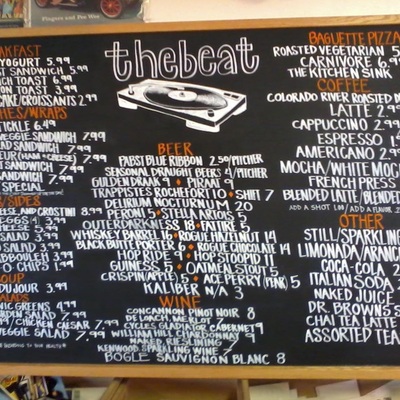 Fingers and Pee Wee
thebeat
AKFAST
YOGURT 5.99
ST SANDWICH 5.99
NCH TOAST 6.99
ON TOAST 3.99
CAKE/CROISSANTS 2.99
HES/WRAPS
TICKLE 6.49
VEGGIE SANDWICH 7.99
AD SANDWICH 7.99
EUR (HAM & CHEESE) 7.99
T SANDWICH 7.99
SANDWICH 7.99
SPECIAL
S/SIDES
HEESE AND CROSTINI 8.99
EGGS 4
HEESE 5.99
SALAD 3.99
SALAD 3.99
ABBOULEH 3.99
O CHIPS 1.99
SOUP
DU JOUR 3.99
SALADS
NIC GREENS 4.99
GARDEN SALAD 7.99
/CHICKEN CAESAR 7.99
VEGGIE SALAD 7.99
BEER
PABST BLUE RIBBON 2.50/PITCHER
SEASONAL DRAUGHT BEERS 4/PITCHER
GULDEN DRAAK 9 PIRAAT 9
TRAPPISTES ROCHEFORT 10 SHIFT 7
DELIRIUM NOCTURNUM 20
PERONI 5 STELLA ARTOIS 5
OUTER DARKNESS 18 FATIRE 5
WHISKEY BARREL 16 ROGUE HAZELNUT 14
BLACK BUTTE PORTER 6 ROGUE CHOCOLATE 14
HOP RIDE 9 HOP STOOPID 11
GUINESS 5 OATMEAL STOUT 5
CRISPIN (APPLE) 5 ACE PERRY (PEAR) 5
KALIBER N/A 3
WINE
CONCANNON PINOT NOIR 8
DE LOACH, MERLOT 7
CYCLES GLADIATOR CABERNET 9
WILLIAM HILL CHARDONNAY 9
NAKED, RIESLING
KENWOOD SPARKLING WINE 7
BOGLE SAUVIGNON BLANC 8
BAGUETTE PIZZA
ROASTED VEGETARIAN 5
CARNIVORE 6.99
THE KITCHEN SINK
COFFEE
COLORADO RIVER ROASTED D
LATTE 2.99
CAPPUCCINO 2.99
ESPRESSO 1
AMERICANO 2.99
MOCHA/WHITE MOCHA
FRENCH PRESS
BLENDED LATTE/BLENDED
ADD A SHOT 1.00/ ADD A FLAVOR
OTHER
STILL/SPARKLING
LIMONADA/ARANC
COCA-COLA 2
ITALIAN SODA
NAKED JUICE
DR. BROWN'S
CHAI TEA LATTE
ASSORTED TEA